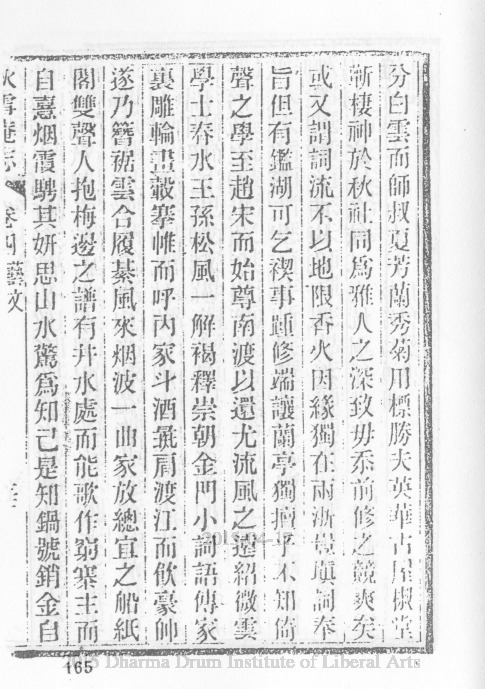 分白雲而師叔夏芳蘭秀菊用標勝夫英華古屋椒堂
漸棲神於秋社同爲雅人之深致毋忝前修之競爽矣
或又謂詞流不以地限香火因緣獨在兩浙塡詞奉
旨但有鑑湖可乞禊事踵修端讓蘭亭獨擅乎不知倚
聲之學至趙宋而始尊南渡以還尤流風之遠紹微雲
學士春水王孫松風一解褐釋崇朝金門小詞語傳家
裏雕輪畫轂搴帷而呼內家斗酒彘肩渡江而飮豪帥
遂乃簪裾雲合履綦風來烟波一曲家放總宜之船紙
閣雙聲人抱梅邊之譜有井水處而能歌作窮寨主而
自憙烟霞騁其妍思山水驚爲知己是知鍋號銷金自
雪庵志 卷四 藝文
165
Dharma Drum Institute of Liberal Arts